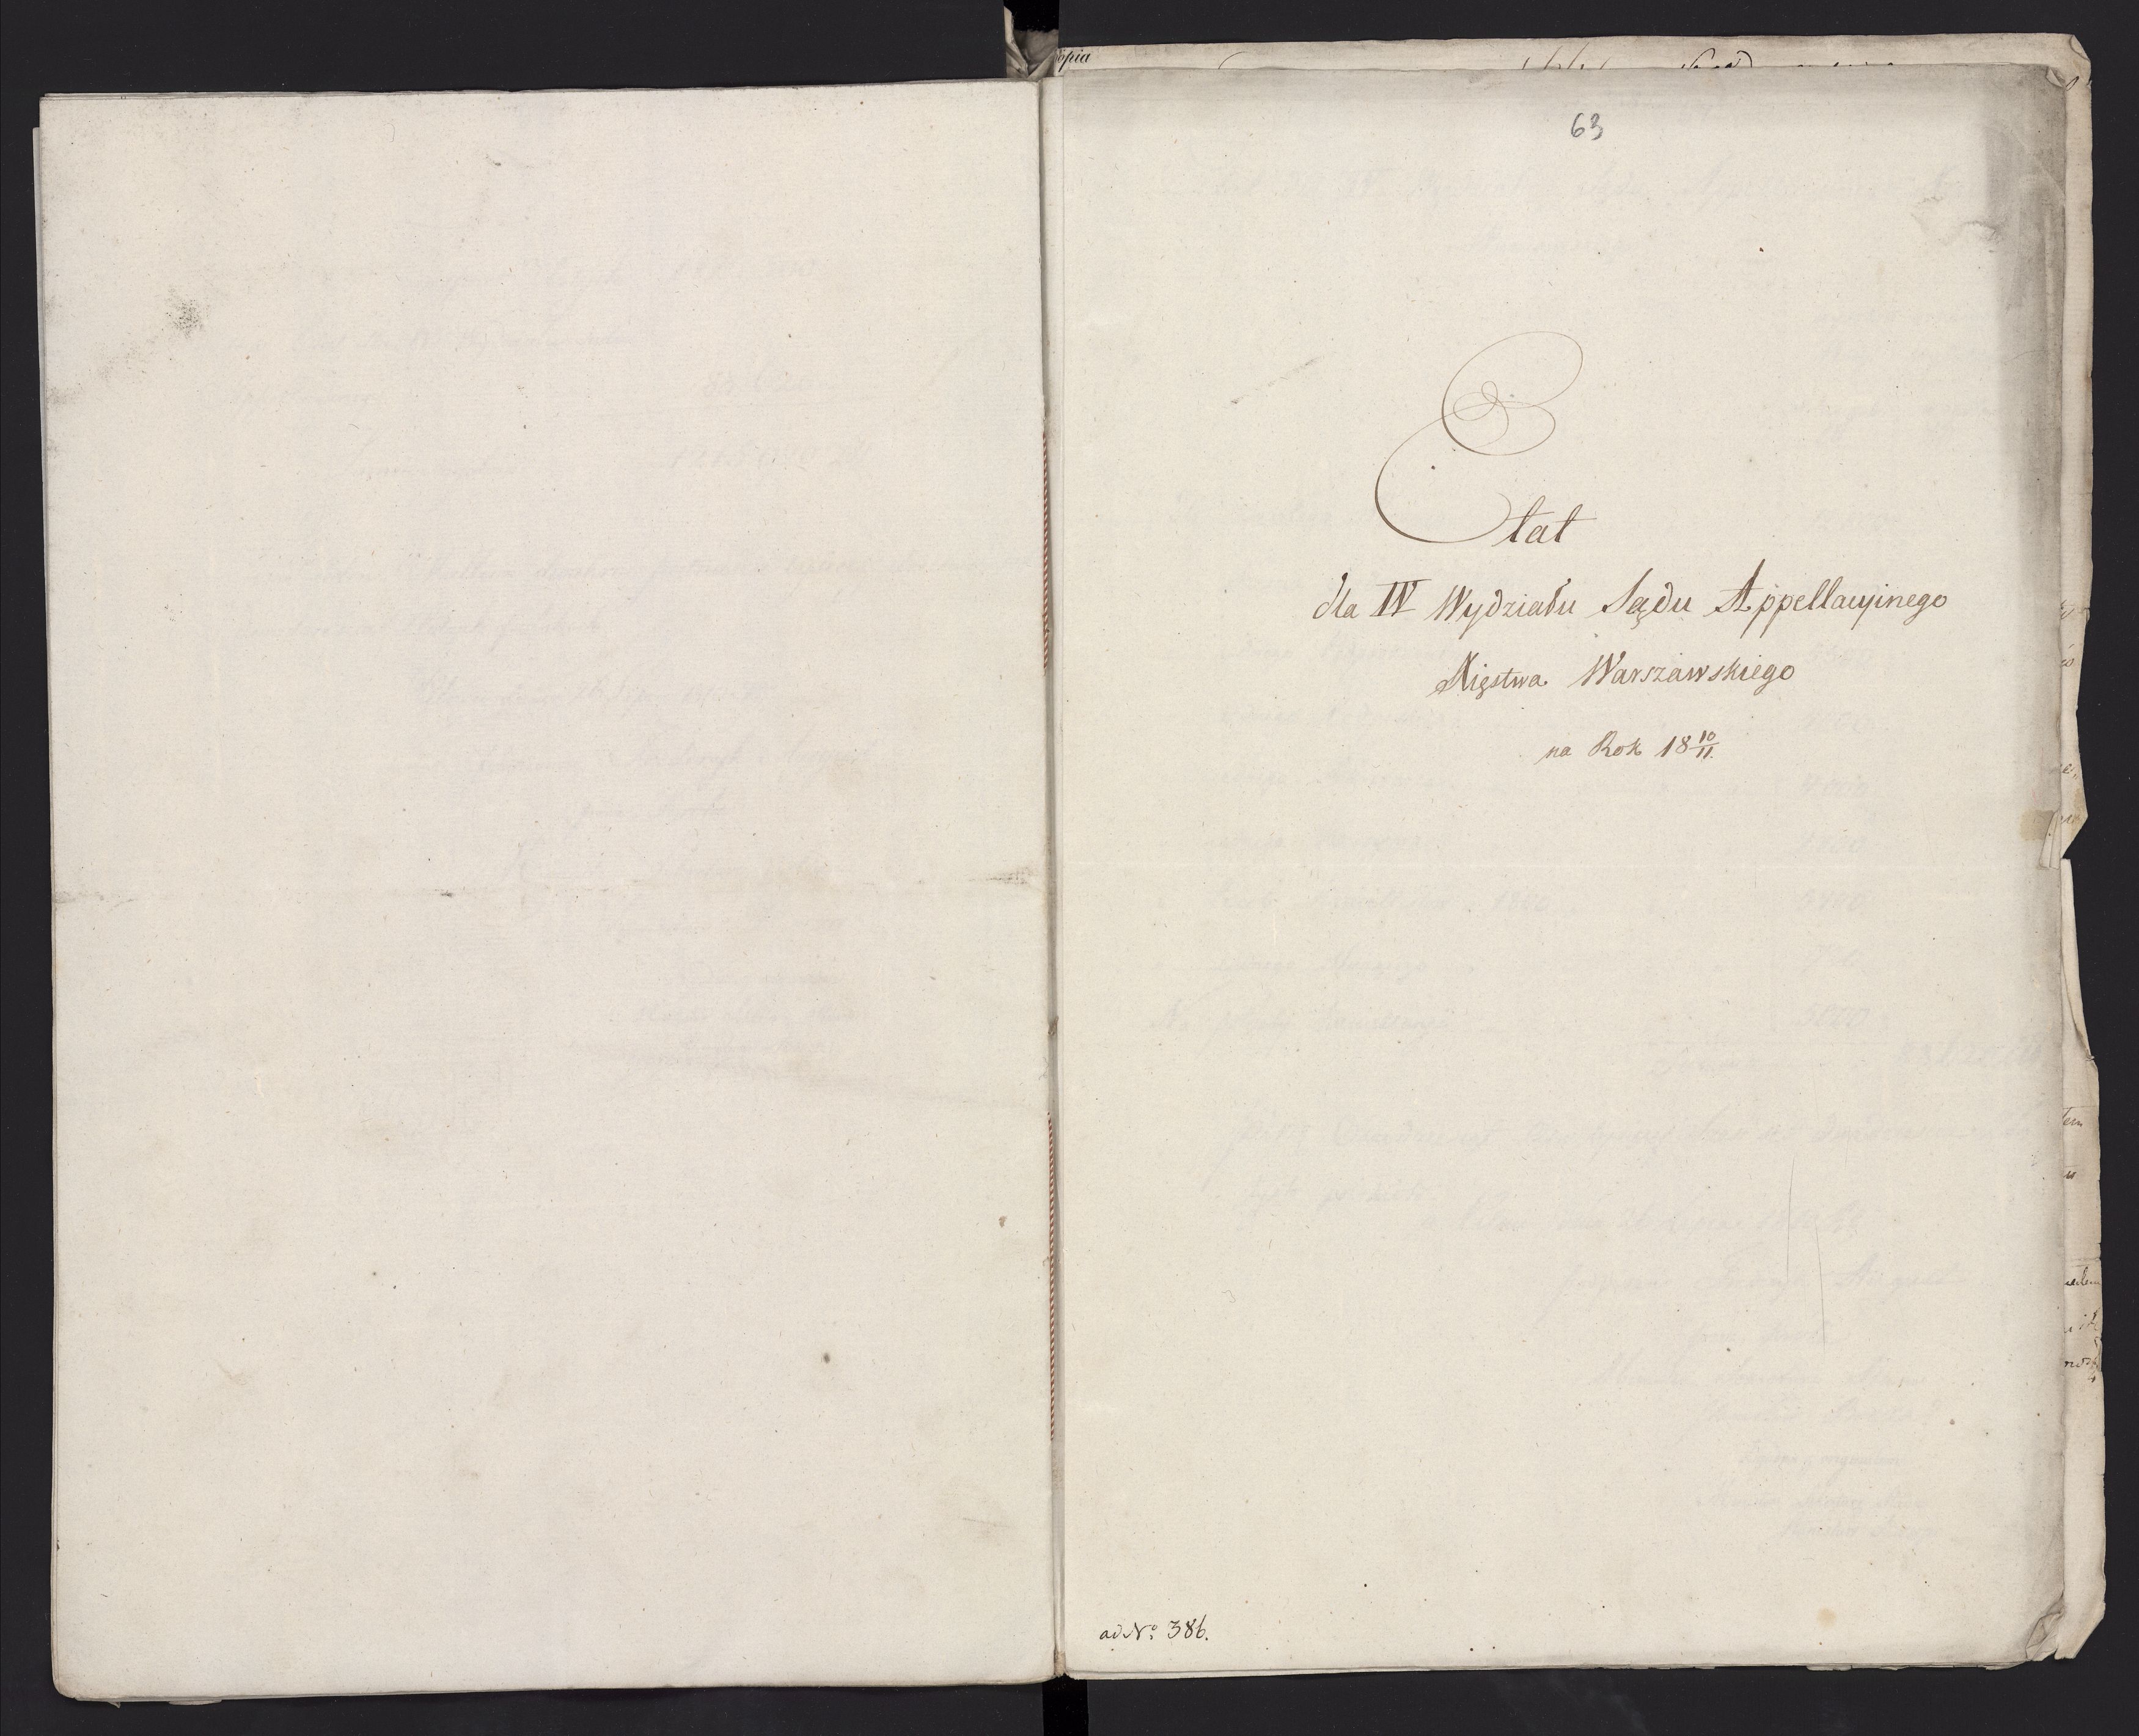 63
Etat
dla IV Wydziału Sądu Appellacyinego
Xięstwa Warszawskiego
na Rok 18 10/11.
ad No: 386.